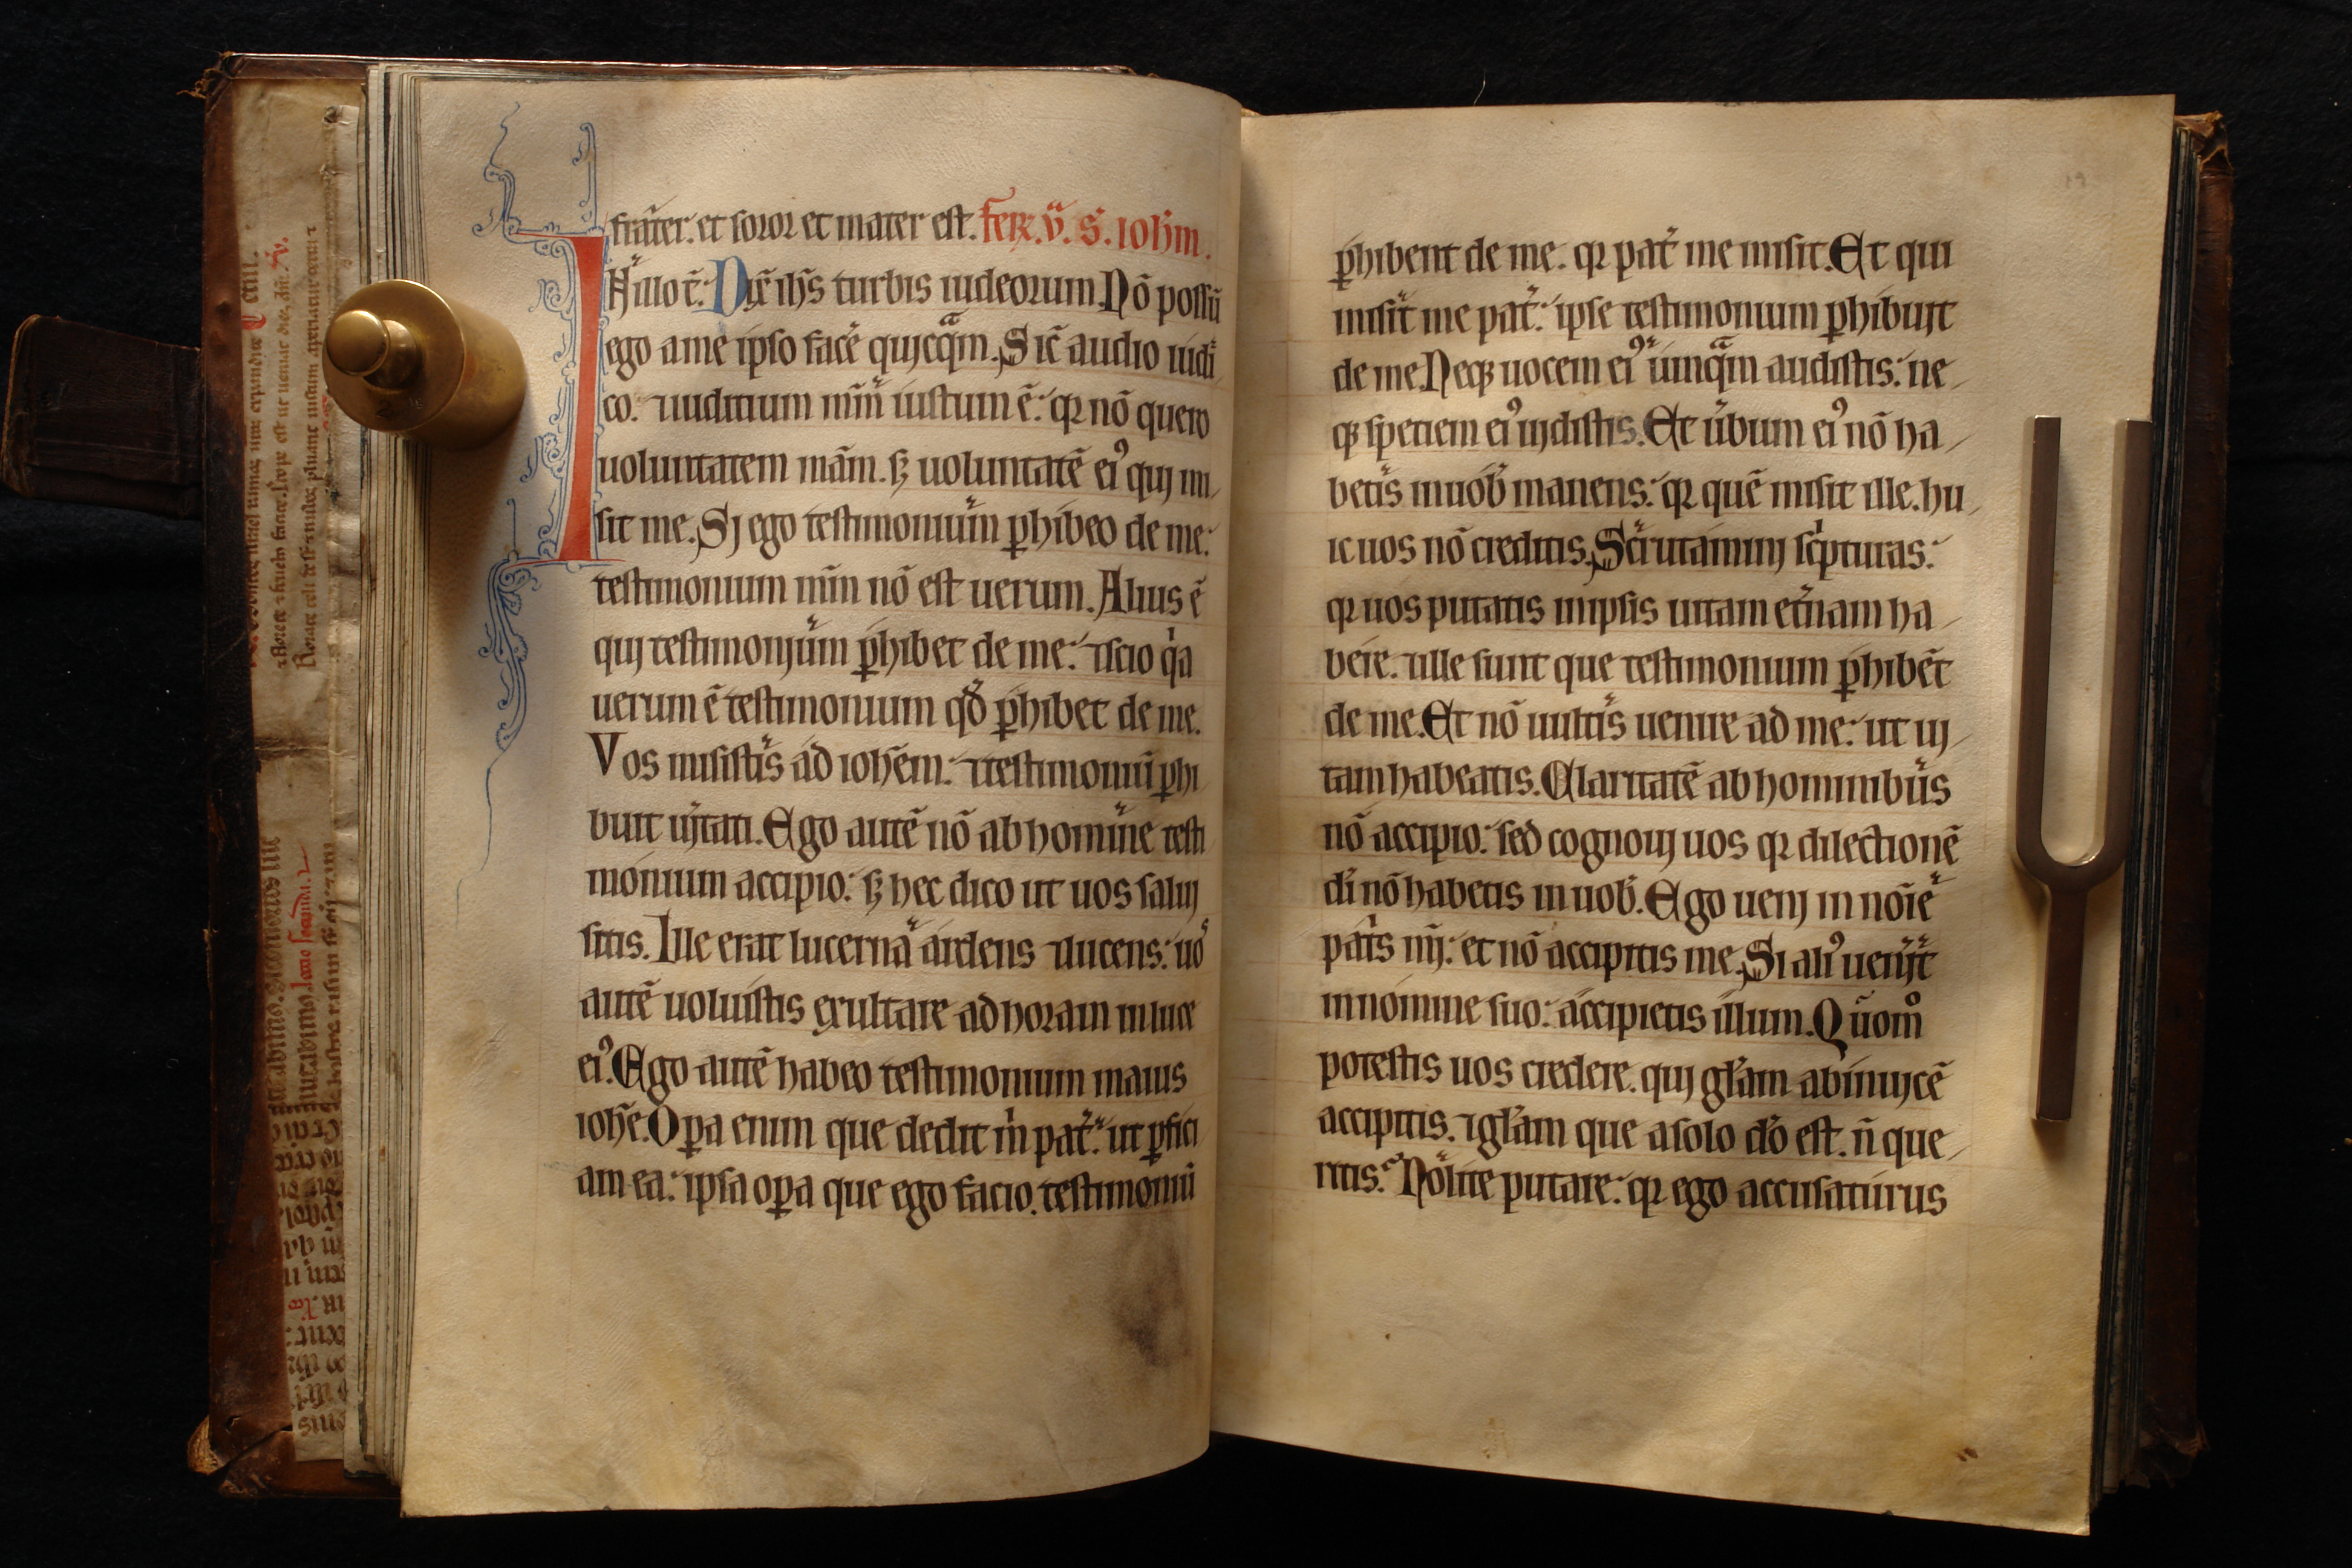 frat̄er. et soror et mater est. fer̄. v̄. S. ioh̄m.
IN illo t̄. Dix̄ ih̄s turbis iudeorum. Nō possū
ego a me ipso facē quicqᵃm. Sic̄ audio iudi
co. ⁊ iuditium mm̄ iustum ē. qꝛ nō quero
uoluntatem mām. sꝫ uoluntatē eiꝰ qui mi
sit me. Si ego testimonium ꝑhibeo de me.
testimonium mm̄ nō est uerum. Alius ē
qui testimonium ꝑhibet de me. ⁊ scio qⁱa
uerum ē testimonium qđ ꝑhibet de me.
Vos misistis ad ioh̄em. ⁊ testimoniū ꝑhi
buit uītati. Ego autē nō ab homine testi
monium accipio. sꝫ hec dico ut uos salui
sitis. Ille erat lucerna ardens ⁊ lucens. uoˢ
autē uoluistis exultare ad horam in luce
eiꝰ. Ego autē habeo testimonium maius
ioh̄e. Oꝑa enim que dedit m̄ pat̄. ut ꝑfici
am ea. ipsa oꝑa que ego facio. testimoniū
ꝑhibent de me. qꝛ pat̄ me misit. Et qui
misit me pat̄. ipse testimonium ꝑhibuit
de me. Neqꝫ uocem eiꝰ umqᵃm audistis. ne
qꝫ speciem eiꝰ uidistis. Et ūbum eiꝰ nō ha
betis in uob̄ manens. qꝛ quē misit ille. hu
ic uos nō creditis. Scrutamini scⁱpturas.
qꝛ uos putatis in ipsis uitam et̄nam ha
bere. ⁊ ille sunt que testimonium ꝑhibēt
de me. Et nō uultis uenire ad me. ut ui
tam habeatis. Claritatē ab hominibus
nō accipio. sed cognoui uos qꝛ dilectionē
di̅ nō habetis in uob̄. Ego ueni in noīe
patⁱs mī. et nō accipitis me. Si aliꝰ ueniīt
in nomine suo. accipietis illum. Quom̊
potestis uos credere. qui gl̄am ab inuicē
accipitis. ⁊ gl̄am que a solo dō est. n̄ que
ritis. Nolite putare. qꝛ ego accusaturus